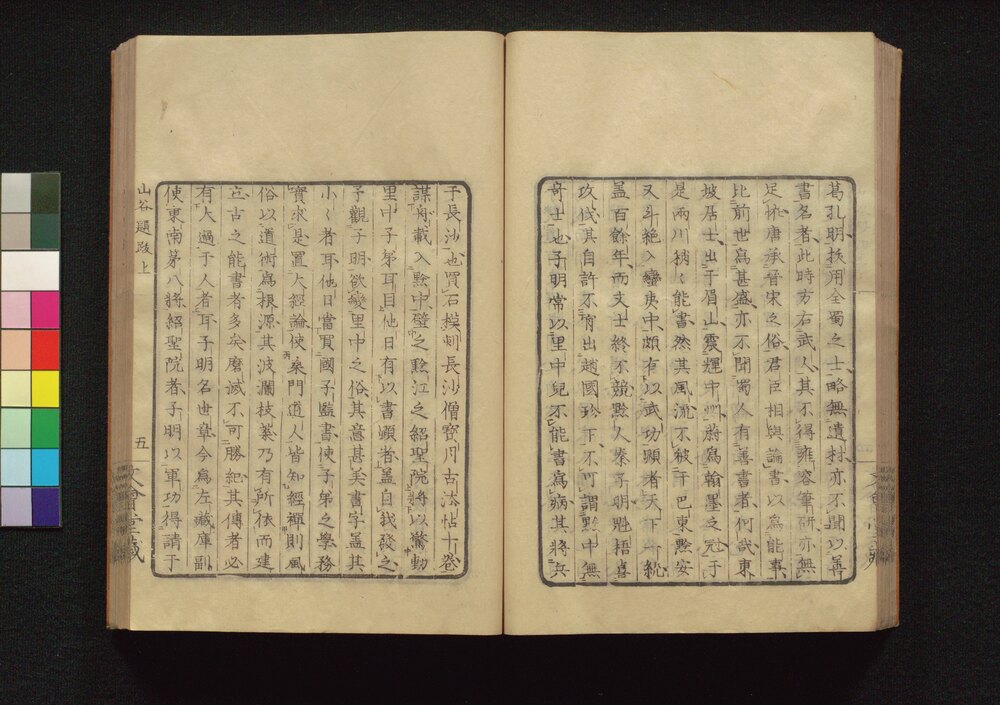 葛孔明拔用全蜀之士略無遺材亦不聞以善
書名者此時方右武人其不得雍容筆研亦無
足恠唐承晉宋之俗君臣相與論書以為能事
比前世為甚盛亦不聞蜀人有善書者何哉東
坡居士出于眉山震輝中州蔚為翰墨之冠于
是兩川稍〻能書然其風流不被于巴東黔安
又斗絶入蠻夷中頗有以武功顯者天下一統
蓋百餘年而文士終不競黔人秦子明魁梧喜
攻伐其自許不肯出趙國珍下不可謂黔中無
奇士也子明常以里中兒不能書為病其將兵
于長沙也買石摸刻長沙僧寳月古法帖十卷
謀舟載入黔中壁之黔江之紹聖院將以驚動
里中子弟耳目他日有以書顯者蓋自我發之
予觀子明欲變里中之俗其意甚美書字蓋其
小〻者耳他日當買國子監書使子弟之學務
實求是置大經論使桑門道人皆知經禪則風
俗以道術為根源其波瀾枝葉乃有所依而建
立古之能書者多矣磨滅不可勝紀其傳者必
有大過于人者耳子明名世章今為左藏庫副
使東南第八將紹聖院者子明以軍功得請于
山谷題跋上
五
文會堂藏